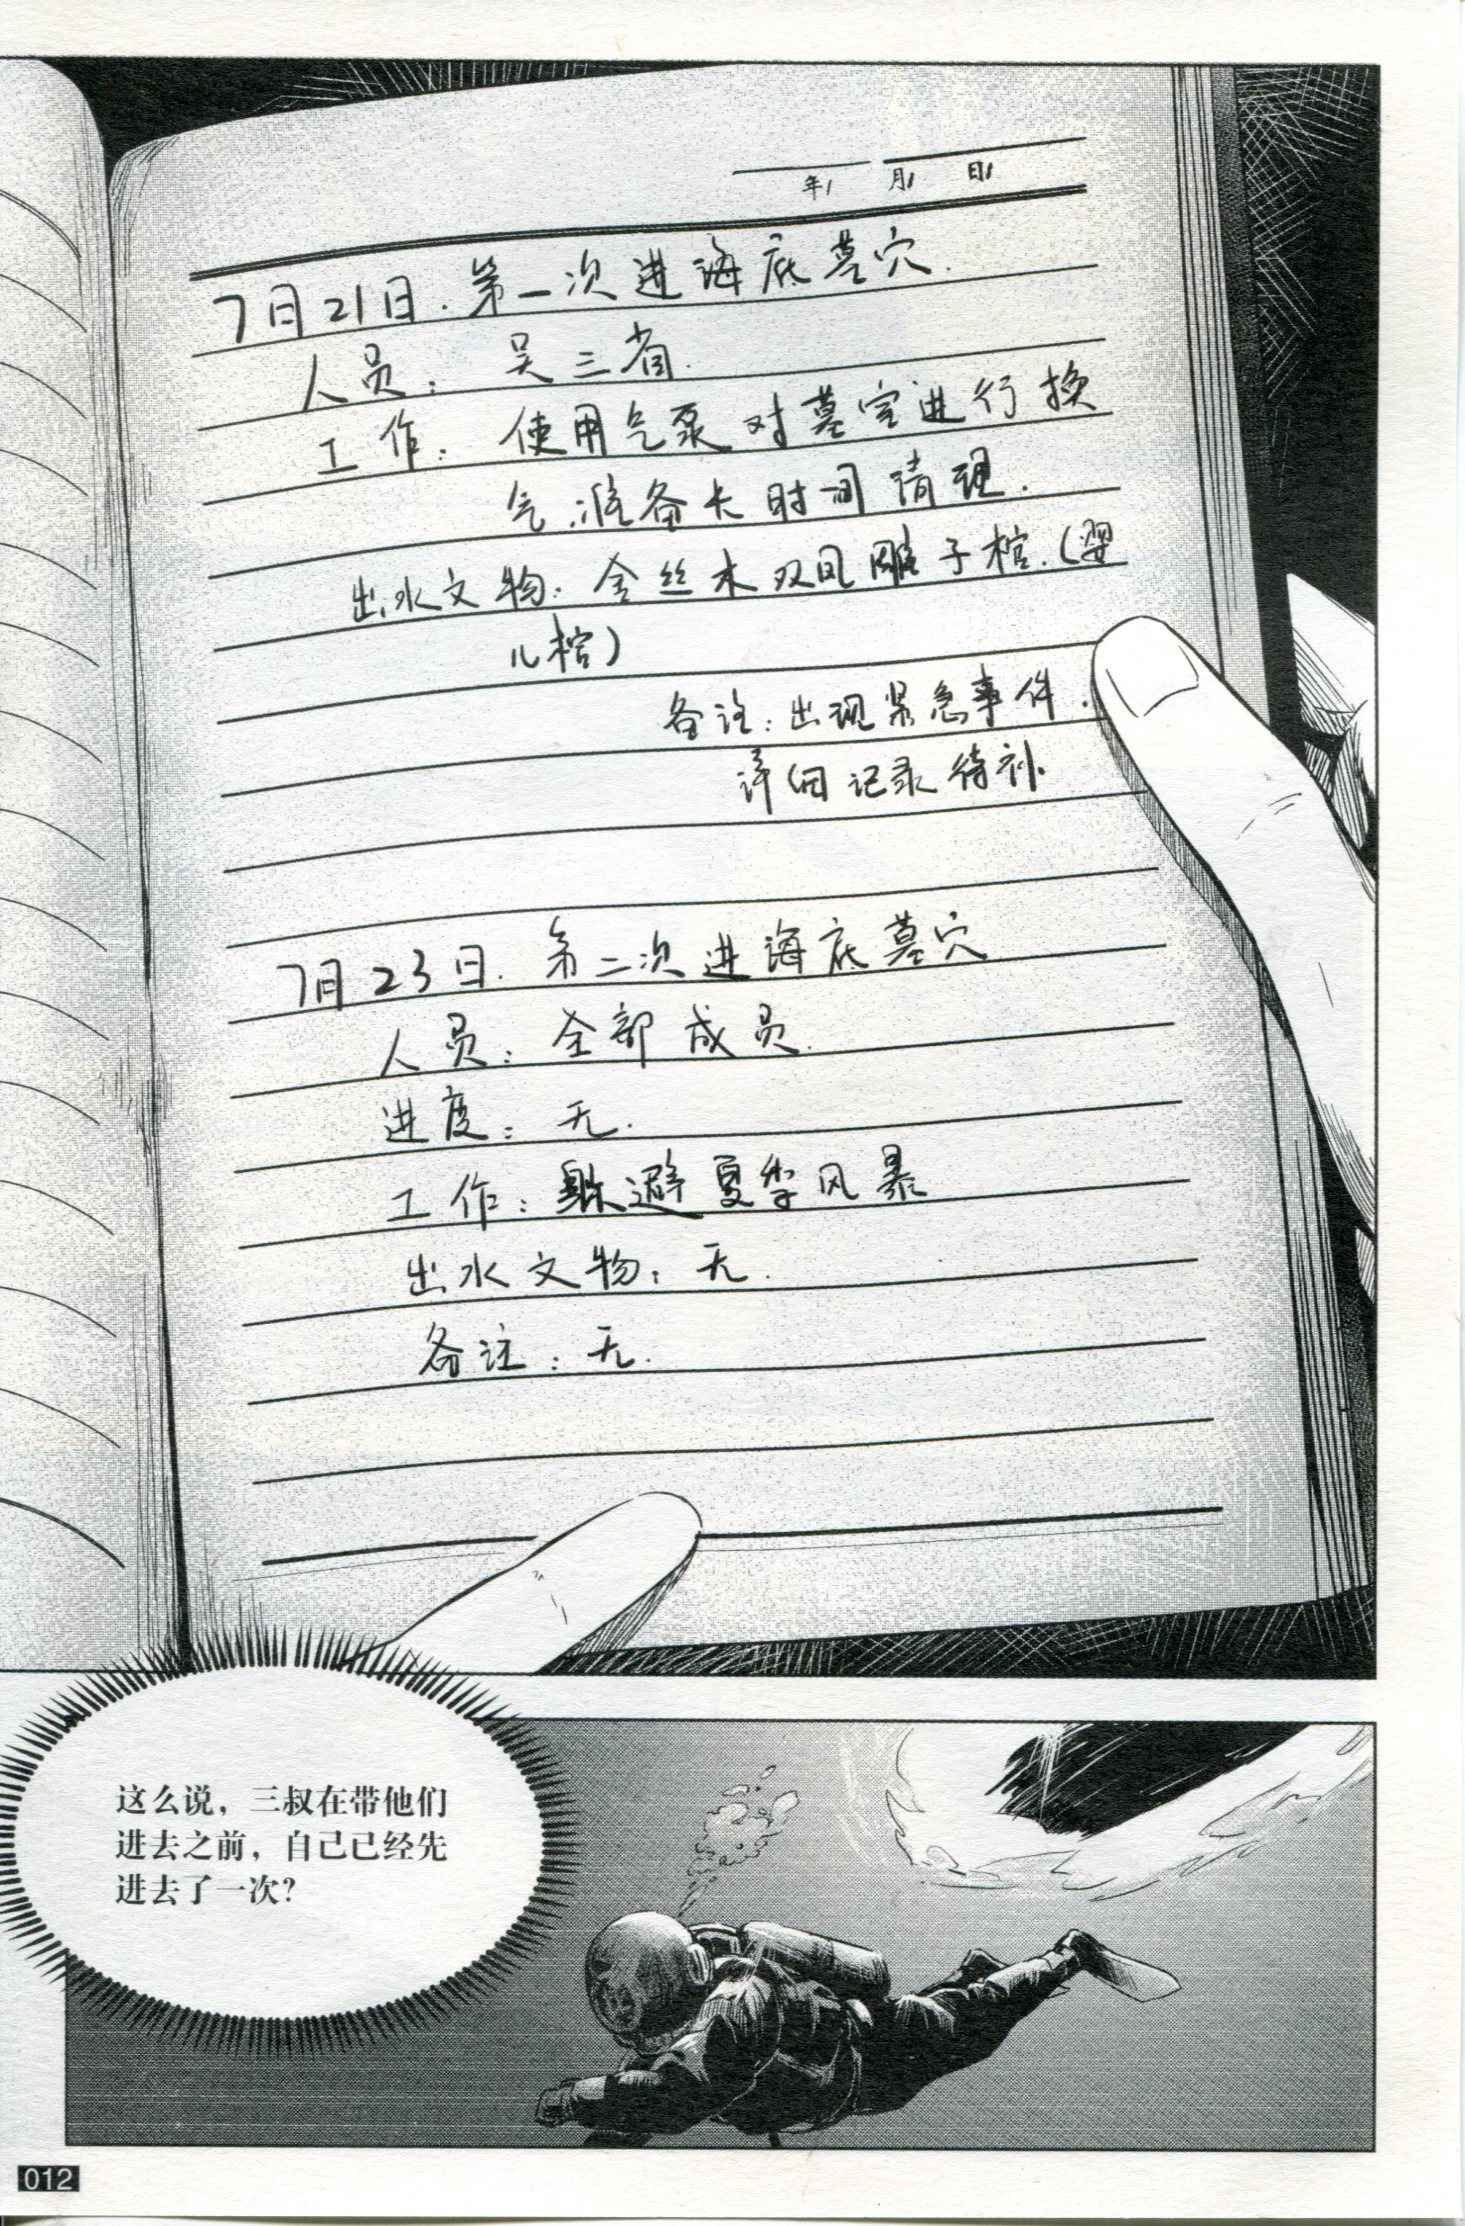 年 月 日
7月21日.第一次进海底墓穴.
人员: 吴三省.
工作: 使用气泵对墓室进行换
气,准备长时间清理.
出水文物:金丝木双凤雕子棺.(婴
儿棺)
备注:出现紧急事件.
详细记录待补.
7月23日.第二次进海底墓穴
人员:全部成员.
进度:无.
工作:躲避夏季风暴
出水文物:无.
备注:无.
这么说,三叔在带他们
进去之前,自己已经先
进去了一次?
012